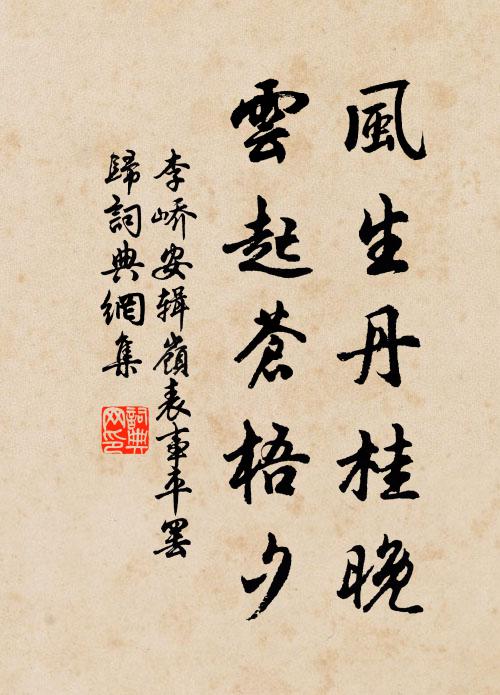 風生丹桂晚
雲起蒼梧夕
李嶠安輯嶺表事平罷
歸詞典網集
詞典
网印